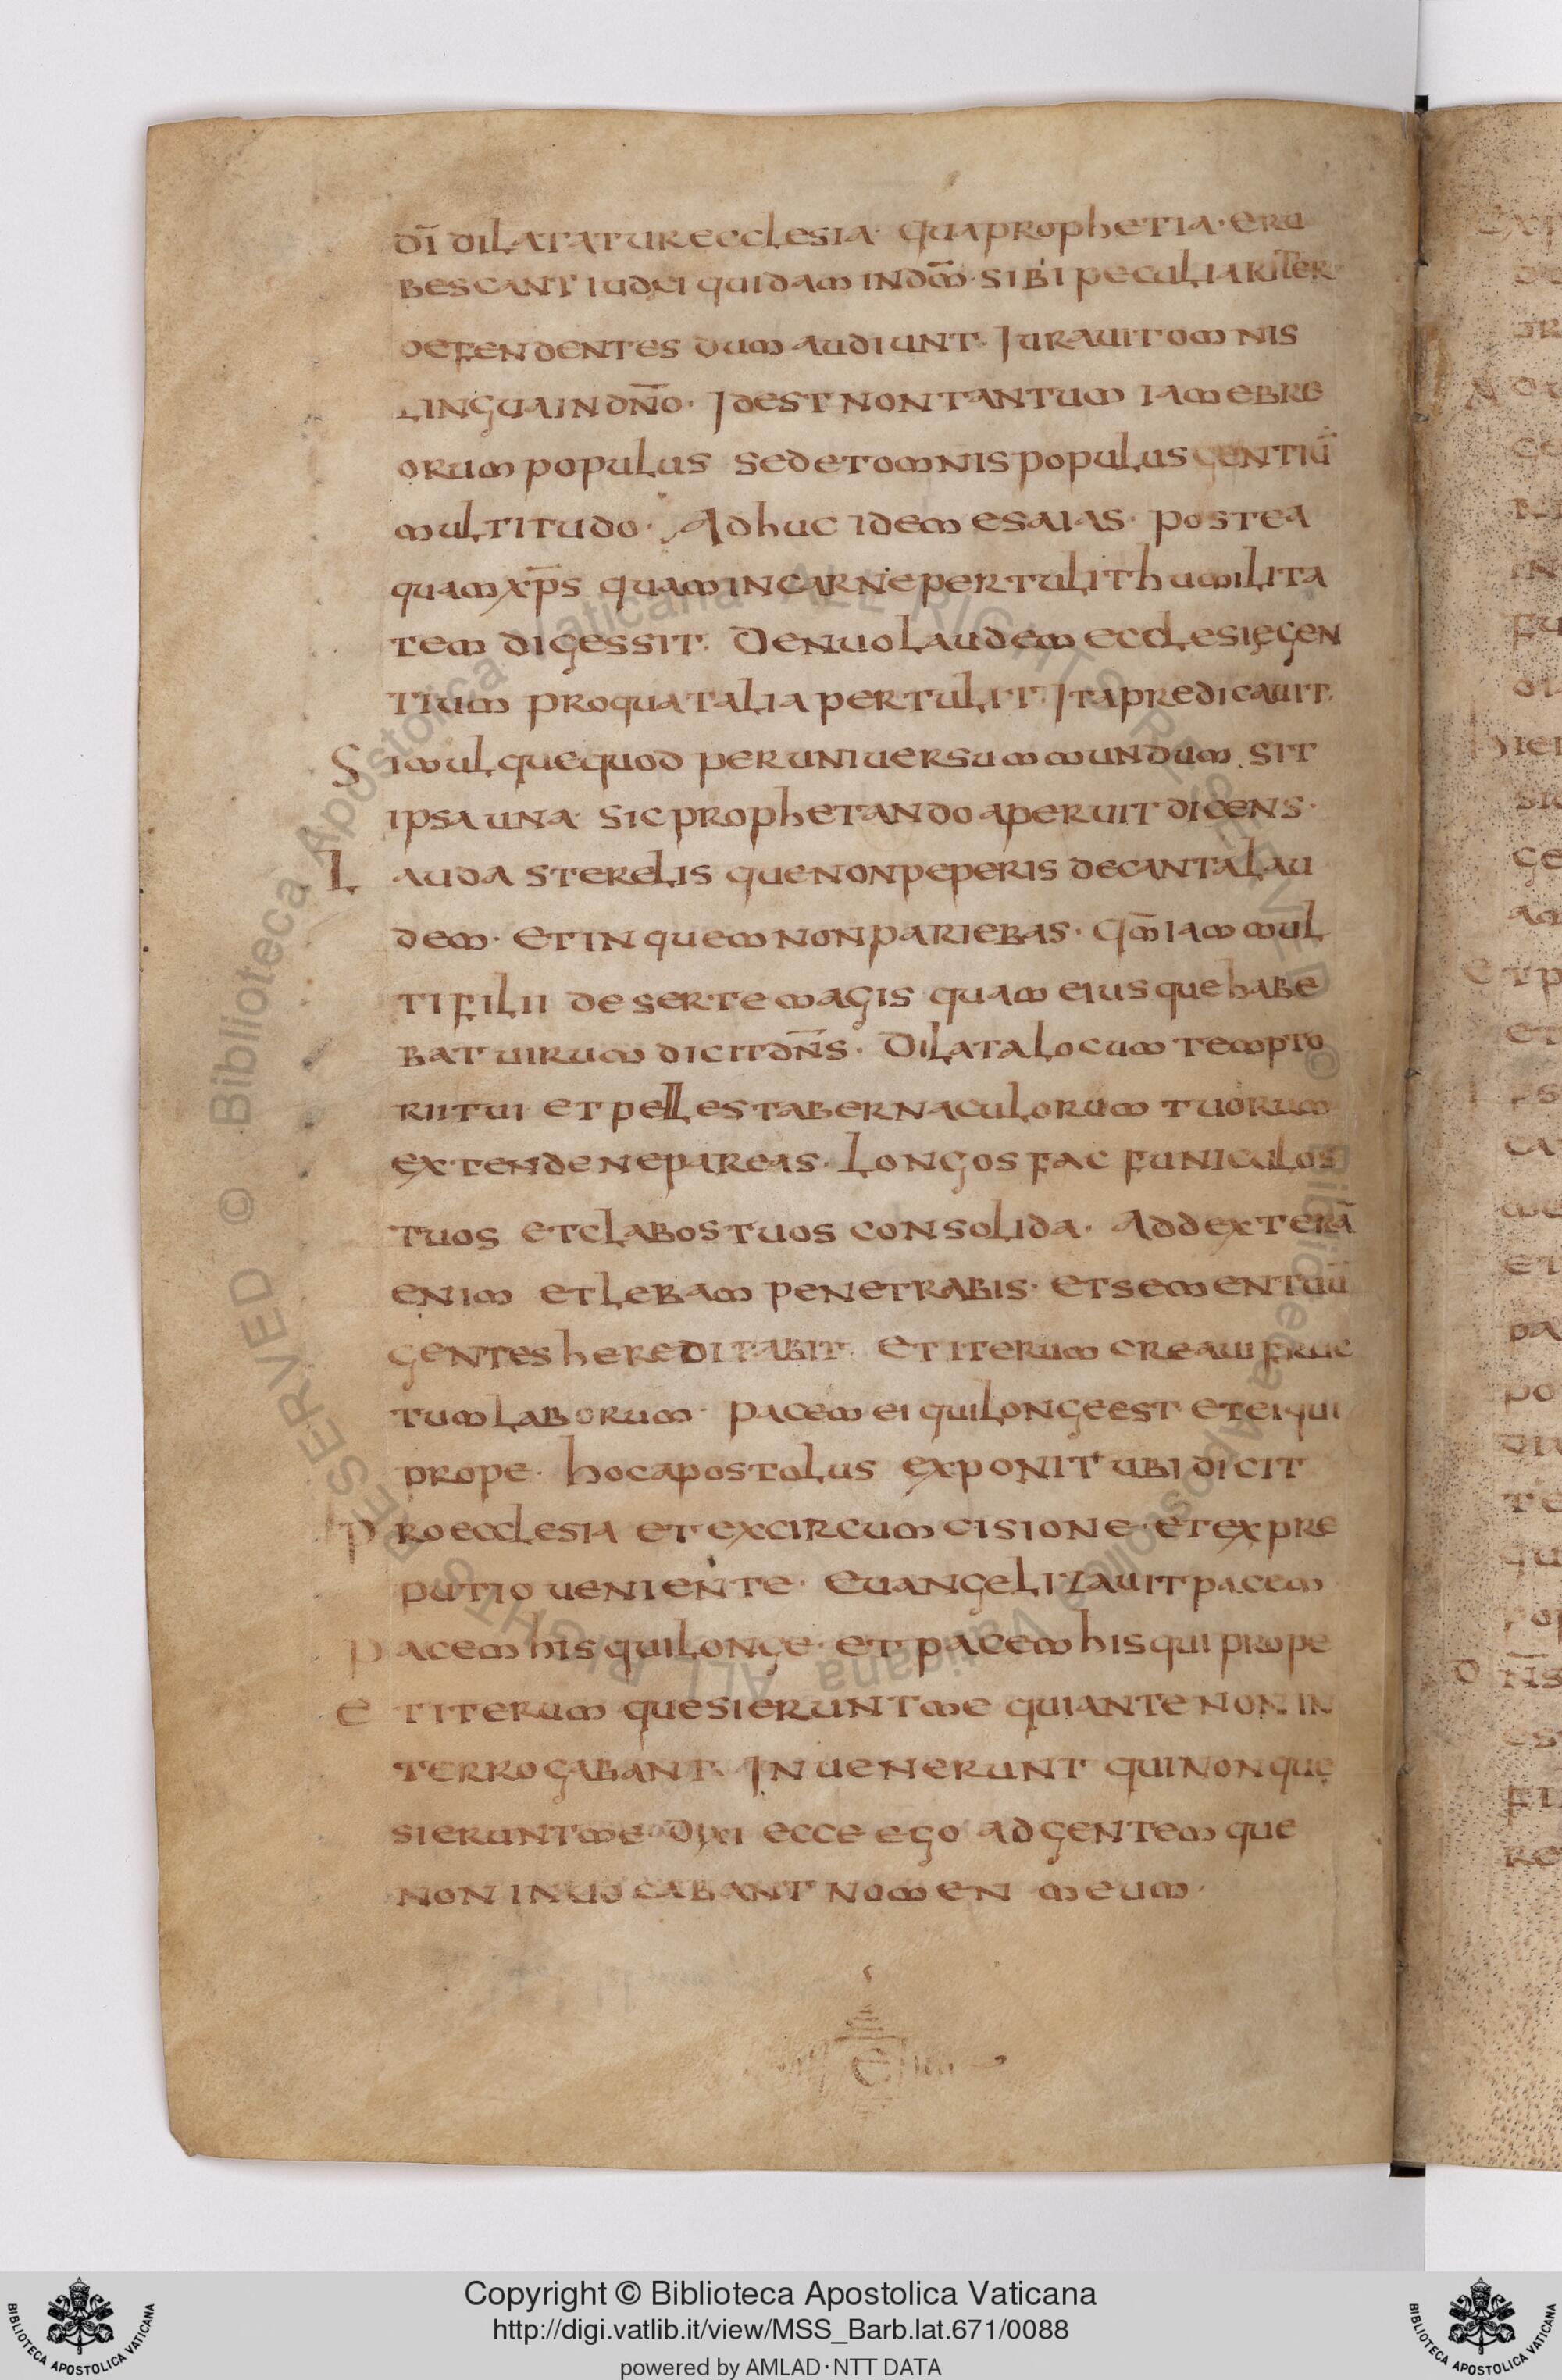 dī dilataturecclesia· quaprophetia· eru
bescant iudei quidam indōm· sibi peculiariter
defendentes dum audiunt· Jurauit omnis
linguain dn̄o· Jdest non tantum iam ebre
orum populus sed et omnis populus gentiū
multitudo· Adhuc idem esaias· postea
quam xp̄s quam in carne pertulit humilita
tem digessit· Denuo laudem ecclesię gen
tium pro qua talia pertulit· Jta predicauit·
Simulque quod per uniuersum mundum sit
ipsa una· sic prophetando aperuit dicens·
Lauda sterelis que non peperis decanta lau
dem· et in quem non pariebas· qm̄ iam mul
ti filii deserte magis quam eius que habe
bat uirum dicit dn̄s· Dilata locum tempto
rii tui et pelles tabernaculorum tuorum
extende ne pareas· Longos fac funiculos
tuos et clabos tuos consolida· Ad dexterā
enim et lebam penetrabis· et semen tuū
gentes hereditabit· Et iterum creaui fruc
tum laborum· pacem ei qui longe est et ei qui
prope· hoc apostolus exponit ubi dicit
Pro ecclesia et ex circumcisione· et ex pre
putio ueniente· Euangelizauit pacem
Pacem his qui longe· et pacem his qui prope
Et iterum quesierunt me qui ante non in
terrogabant· Jnuenerunt qui non que
sierunt me· dixi ecce ego ad gentem que
non inuocabant nomen meum·
Copyright © Biblioteca Apostolica Vaticana
http://digi.vatlib.it/view/MSS_Barb.lat.671/0088
powered by AMLAD·NTT DATA
BIBLIOTECA APOSTOLICA VATICANA
BIBLIOTECA APOSTOLICA VATICANA